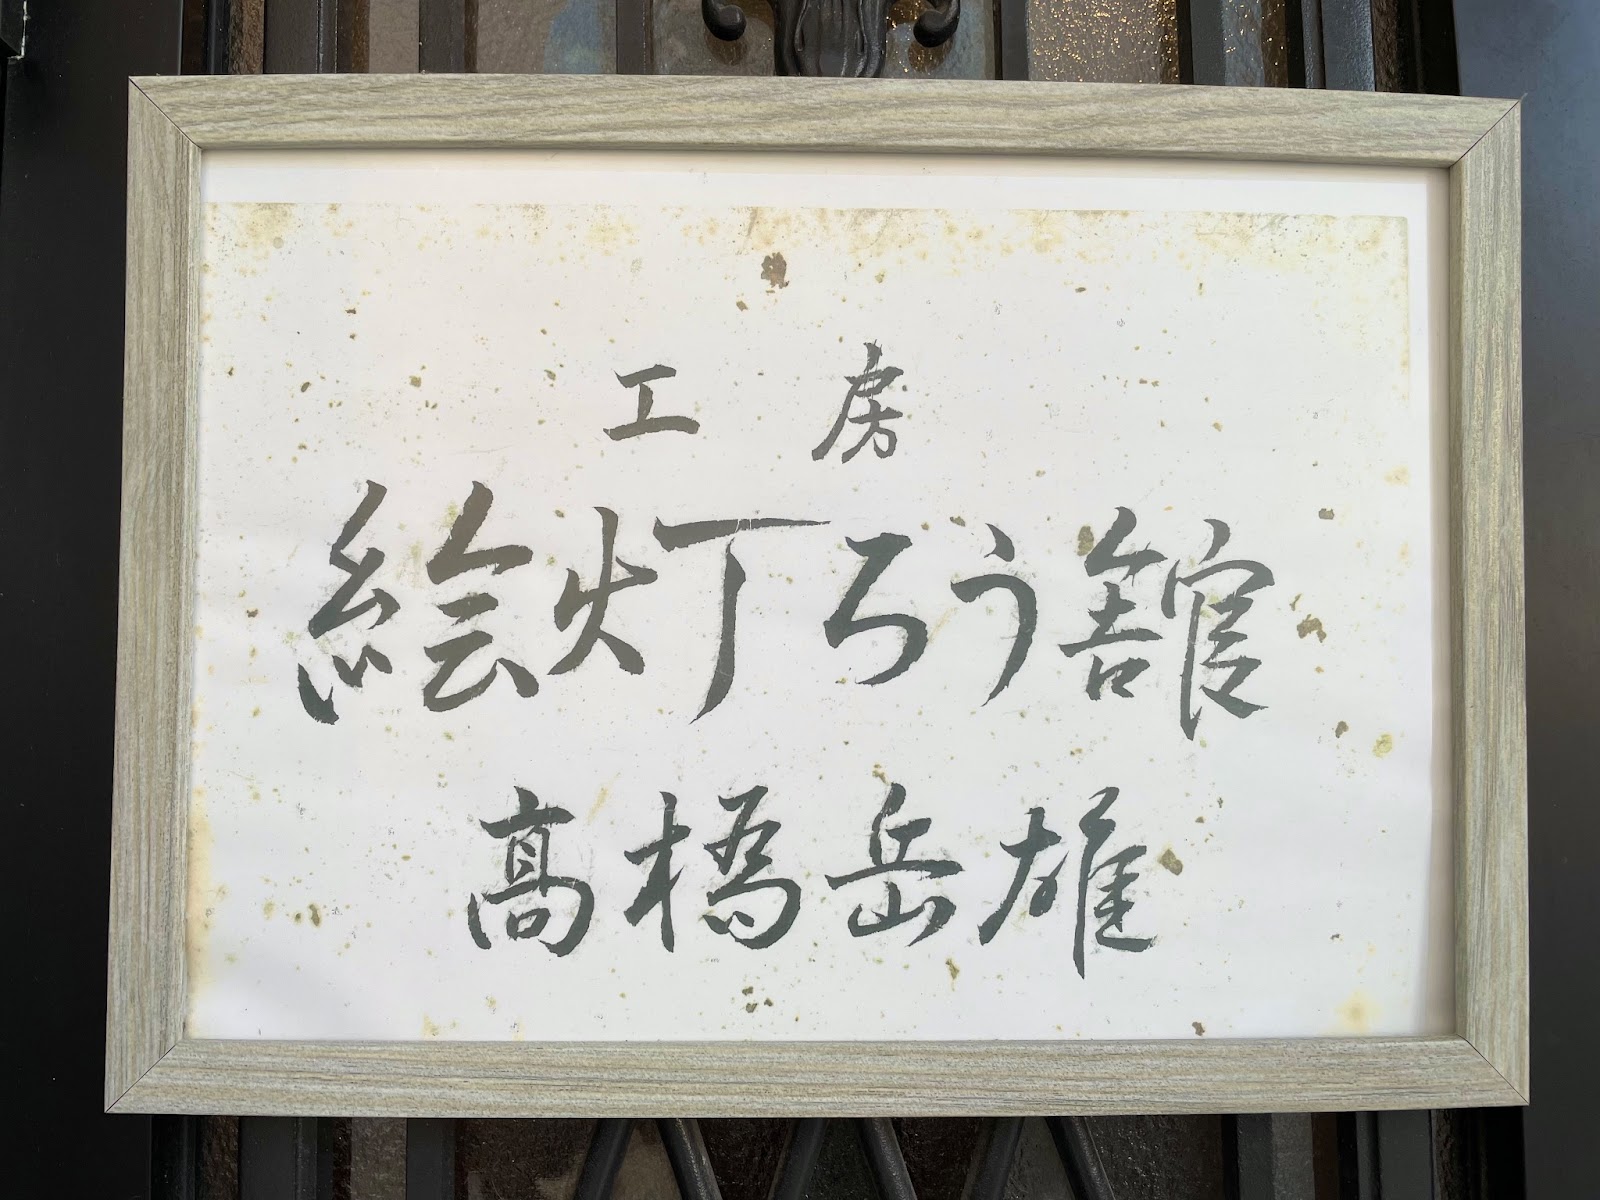 工房
絵灯ろう館
髙橋岳雄